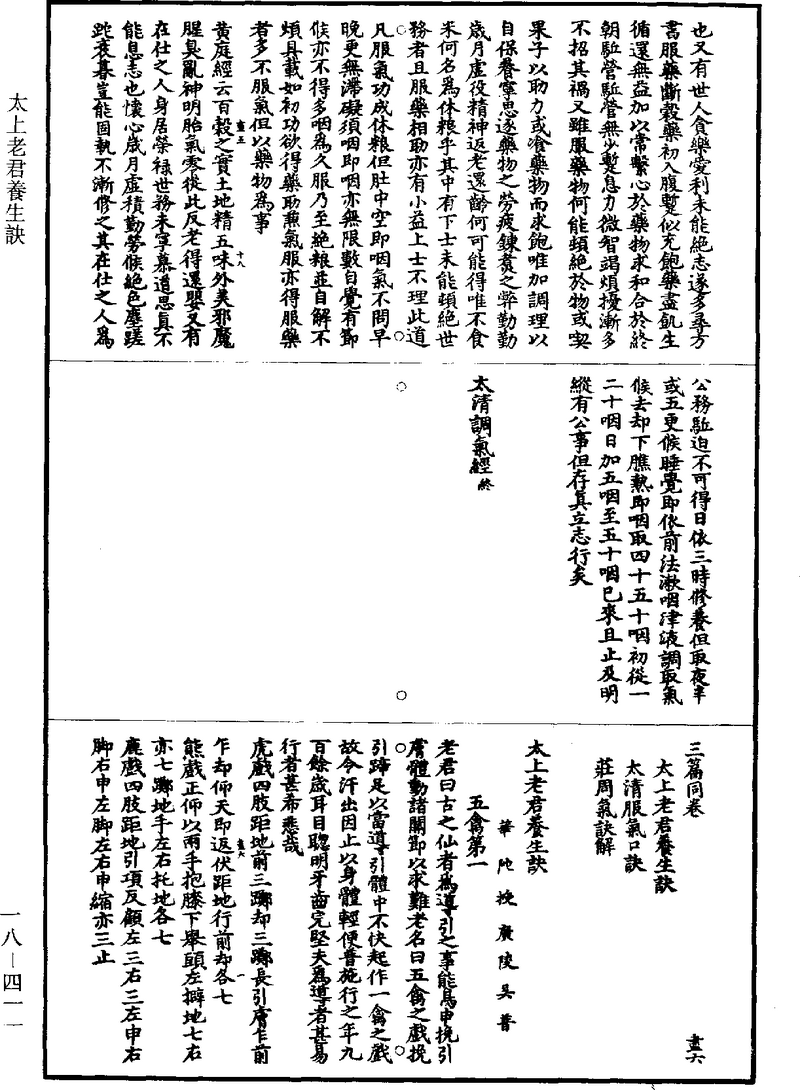 太上老君養生訣
一八—四一一
也又有世人食藥愛利未能絕志遂多尋方
書服藥斷穀藥初入腹蹔似充飽藥盡飢生
循還無益加以常繫心於藥物求和合於終
朝駈營駈營無少蹔息力微智竭煩擾漸多
不招其禍又雖服藥物何能頓絕於物或喫
果子以助力或飡藥物而求飽唯加調理以
自保養寧思逐藥物之勞疲鍊煑之弊勤勤
歲月虛役精神返老還齡何可能得唯不食
米何名爲休粮乎其中有下士未能頓絕世
務者且服藥相助亦有小益上士不理此道
凡服氣功成休粮但肚中空即咽氣不問早
晚更無滯礙須咽即咽亦無限數自覺有節
候亦不得多咽爲久服乃至絕粮並自解不
煩具載如初功欲得藥助兼氣服亦得服藥
者多不服氣但以藥物爲事
盡五
黄庭經云百穀之實土地精五味外美邪魔
十八
腥臭亂神明胎氣零從此反老得還嬰又有
在仕之人身居榮禄世務未寧慕道思真不
能息志也懷心歲月虛積勤勞候絕色塵蹉
跎衰暮豈能固執不漸修之其在仕之人爲
公務駈迫不可得日依三時修養但取夜半
或五更候睡覺即依前法漱咽津液調取氣
候去却下膲熱即咽取四十五十咽初從一
二十咽日加五咽至五十咽已來且止及明
縱有公事但存真立志行矣
太清調氣經終
三篇同卷
盡六
太上老君養生訣
太清服氣口訣
莊周氣訣解
太上老君養生訣
華陁授廣陵吳普
五禽第一
老君曰古之仙者爲導引之事能鳥申挽引
膚體動諸關節以求難老名曰五禽之戲挽
引蹄足以當導引體中不快起作一禽之戲
故令汗出因止以身體輕便普施行之年九
百餘歲耳目聰明牙齒完堅夫爲導者甚易
行者甚希悲哉
虎戲四肢距地前三躑却三躑長引膚乍前
盡六
一
乍却仰天即返伏距地行前却各七
熊戲正仰以兩手抱膝下舉頭左擗地七右
亦七躑地手左右托地各七
鹿戲四肢距地引項反顧左三右三左申右
脚右申左脚左右申縮亦三止